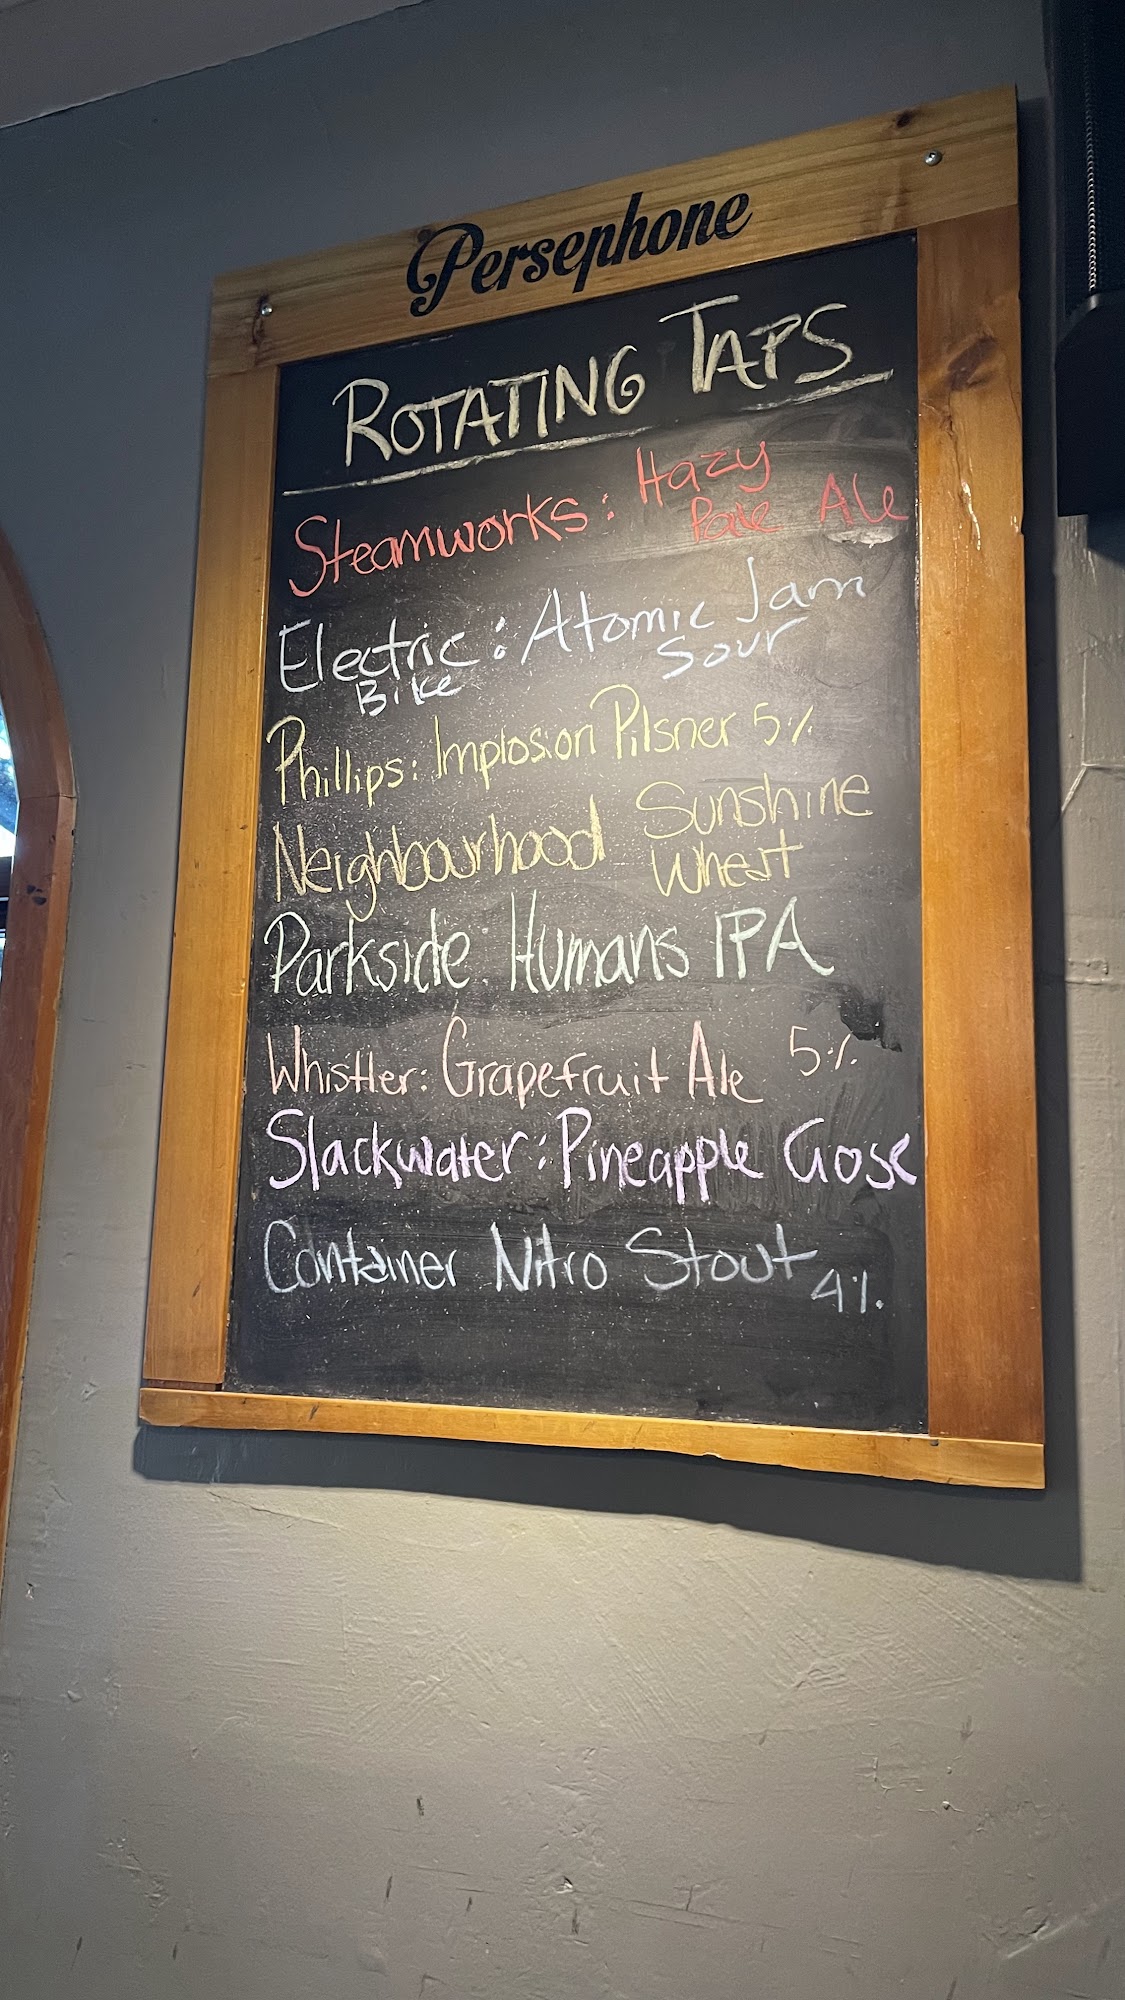 Persephone
ROTATING TAPS
Steamworks: Hazy
Pale Ale
Electric: Atomic Jam
Bike Sour
Phillips: Implosion Pilsner 5%
Neighbourhood Sunshine
Wheat
Parkside Humans IPA
Whistler: Grapefruit Ale 5%
Slackwater: Pineapple Gose
Container Nitro Stout 4%.